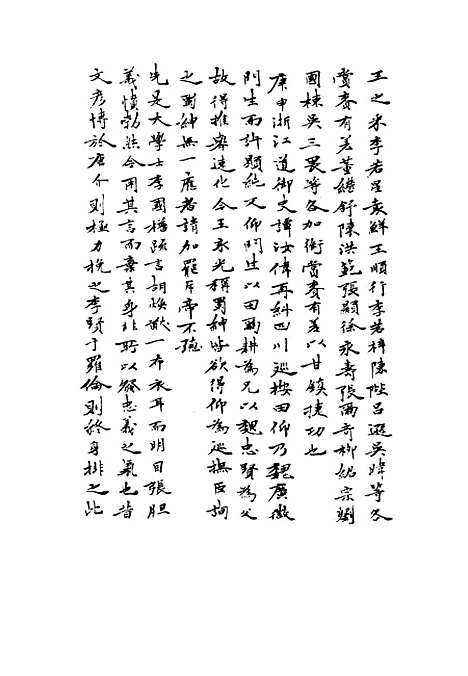 王之采李若星袁鲜王順行李若梓陳陛呂遜吳煒等各
賞賚有差董繼舒陳洪範張顯徐永壽張爾奇柳㛂宗劉
國棟吳三畏等各加銜賞賚有差以甘鎮捷功也
庚申浙江道御史譚汝偉再糾四川巡按田仰乃魏廣微
門生而許顯純又仰門生以田爾耕為兄以魏忠賢為父
故得推舉速化今王永光稱蜀紳皆欲得仰為巡撫臣詢
之蜀紳無一應者請加罷斥帝不聽
先是大學士李國𣚴疏言胡煥猷一布衣耳而明目張胆
義憤勃然今用其言而棄其身非所以發忠義之氣也昔
文彥博於唐介則極力挽之李賢于羅倫則終身排之此